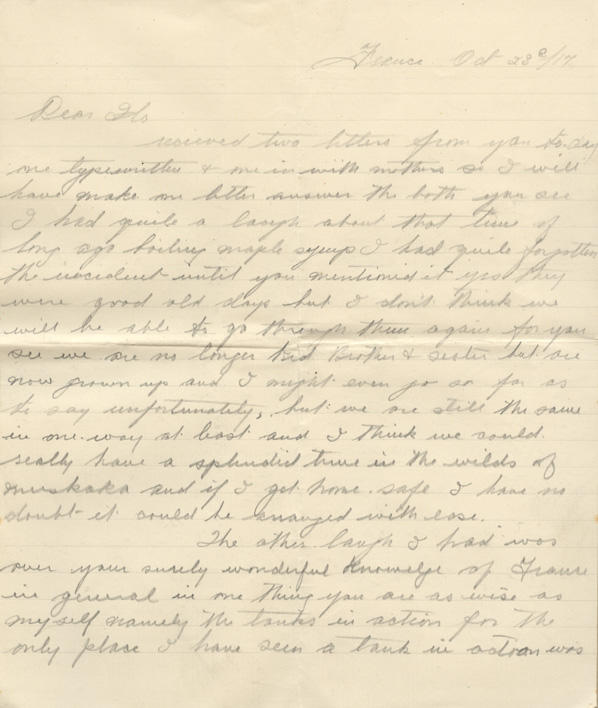 France Oct 23º/17
Dear Flo
recieved two letters from you to-day
one typewritten & one in with mothers so I will
have make one letter answer the both you see
I had quite a laugh about that time of
long ago boiling maple syrup I had quite forgotten
the inccident until you mentioned it yes they
were good old days but I don't think we
will be able to go through them again for you
see we are no longer kid Brother & sister but are
now grown up and I might even go so far as
to say unfortunately, but we are still the same
in one way at least and I think we could
really have a splendid time in the wilds of
muskoka and if I get home safe I have no
doubt it could be arranged with ease.
The other laugh I had was
over your surely wonderful knowelge of France
in general in one thing you are as wise as
myself namely the tanks in action for the
only place I have seen a tank in action was